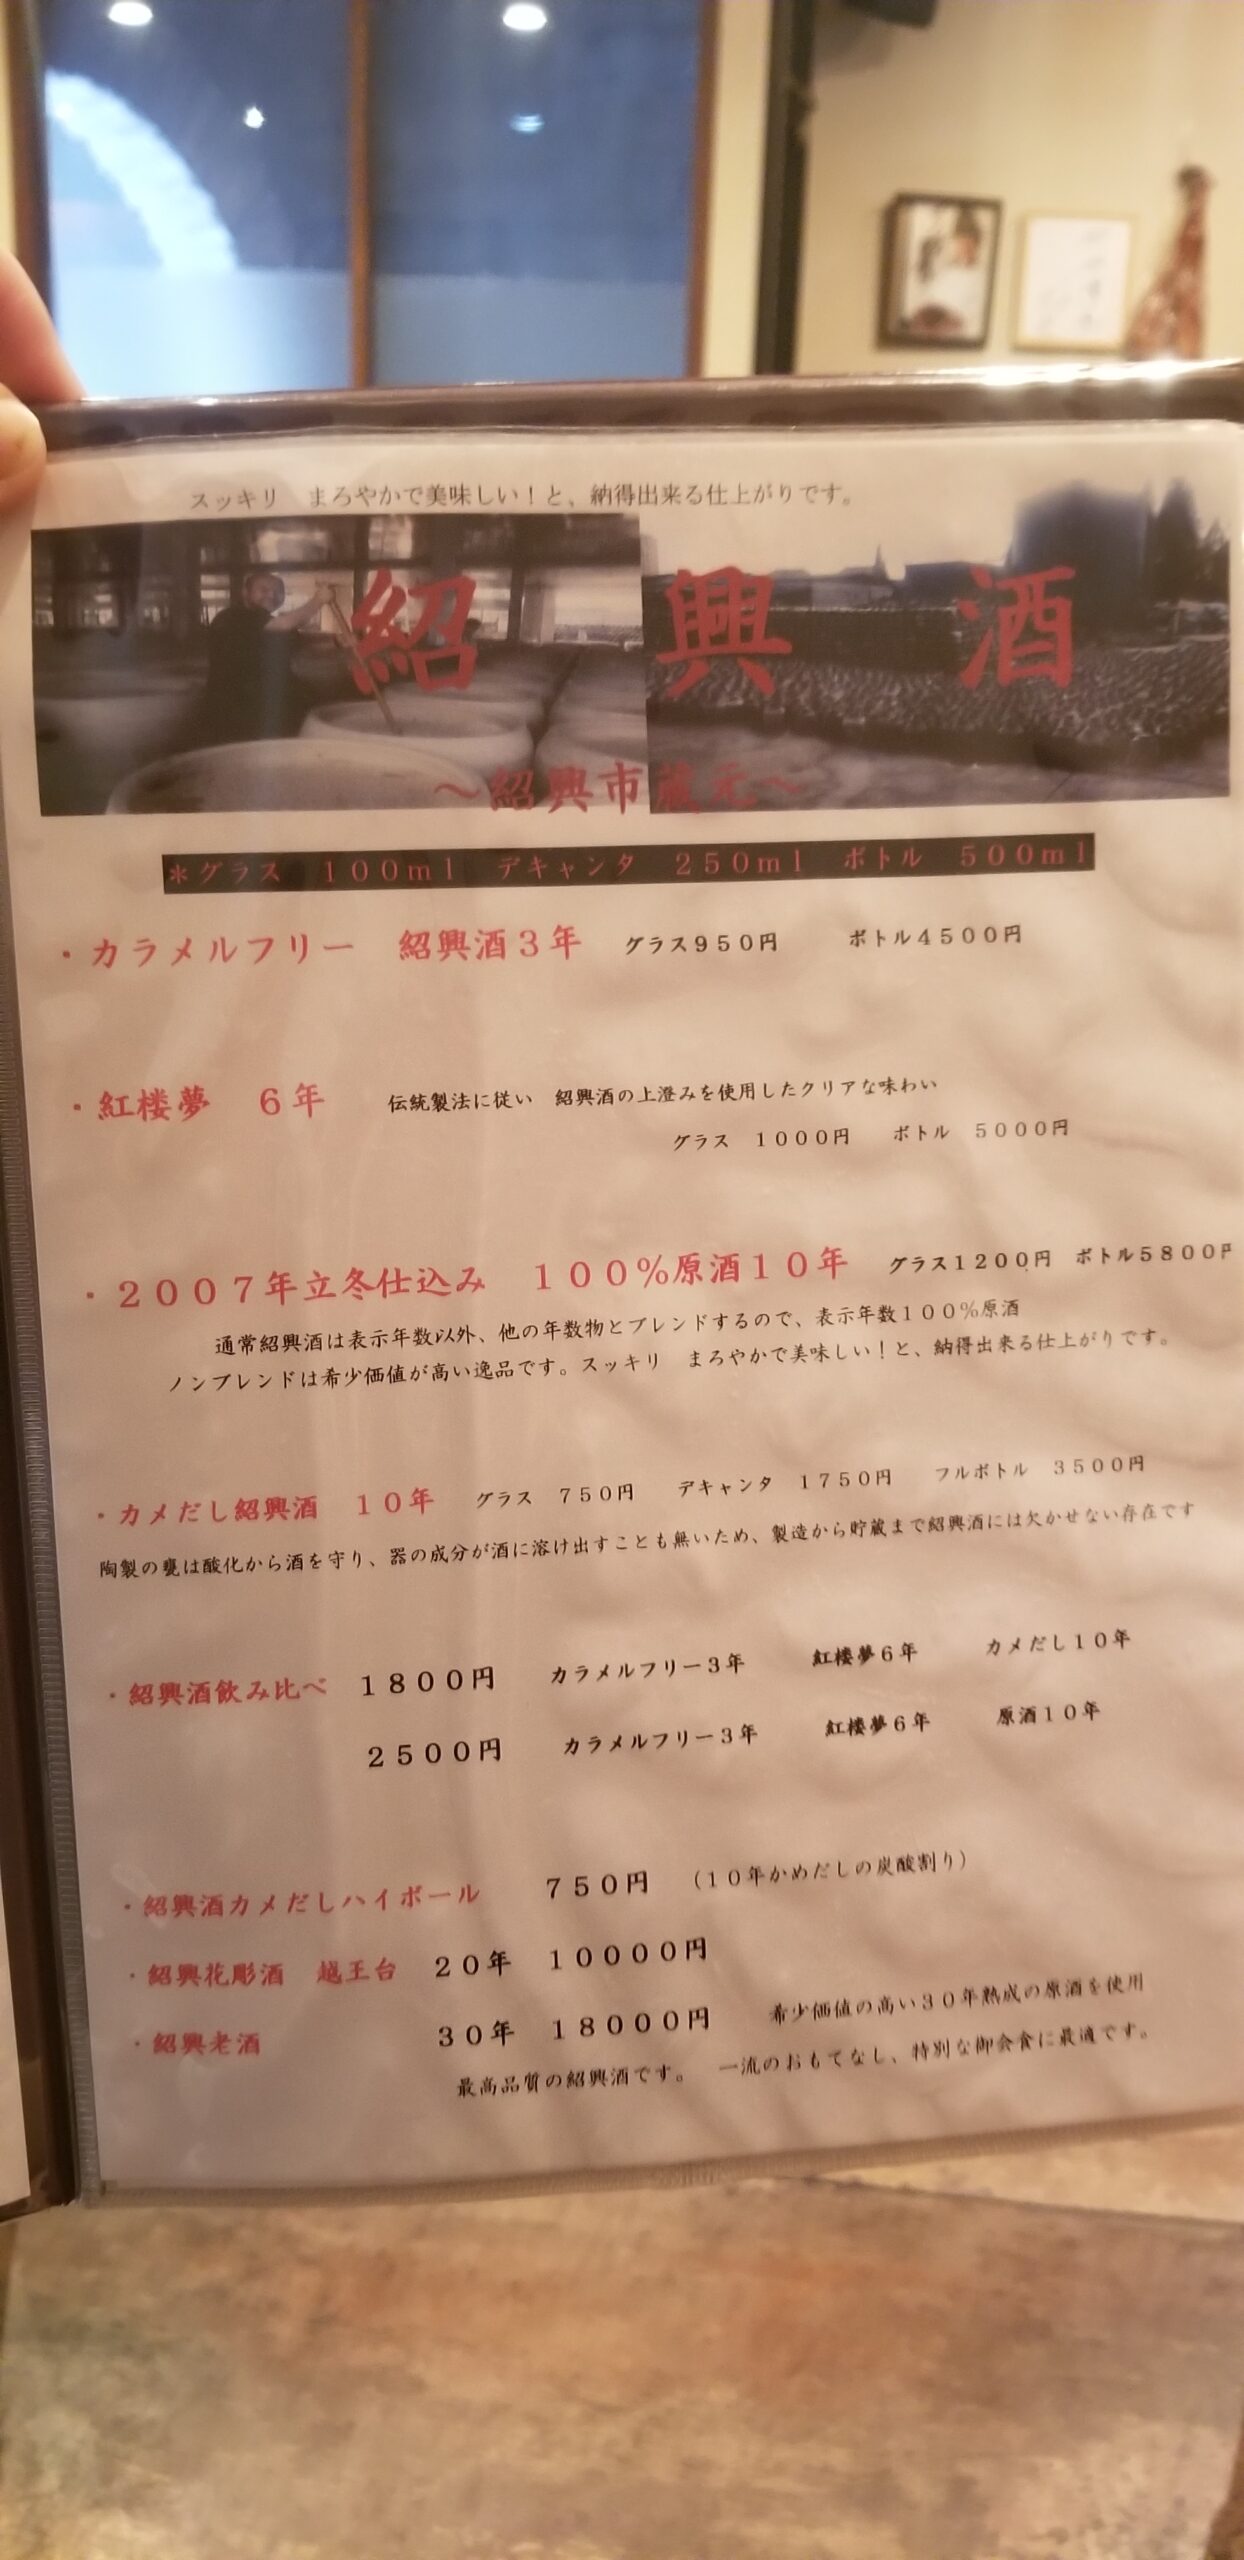 スッキリ　まろやかで美味しい！と、納得出来る仕上がりです。
紹興酒
～紹興市蔵元～
＊グラス　１００ｍｌ　デキャンタ　２５０ｍｌ　ボトル　５００ｍｌ
・カラメルフリー　紹興酒３年　グラス９５０円　ボトル４５００円
・紅楼夢　６年　伝統製法に従い　紹興酒の上澄みを使用したクリアな味わい
グラス　１０００円　ボトル　５０００円
・２００７年立冬仕込み　１００％原酒１０年　グラス１２００円　ボトル５８００円
通常紹興酒は表示年数以外、他の年数物とブレンドするので、表示年数１００％原酒
ノンブレンドは希少価値が高い逸品です。スッキリ　まろやかで美味しい！と、納得出来る仕上がりです。
・カメだし紹興酒　１０年　グラス　７５０円　デキャンタ　１７５０円　フルボトル　３５００円
陶製の甕は酸化から酒を守り、器の成分が酒に溶け出すことも無いため、製造から貯蔵まで紹興酒には欠かせない存在です
・紹興酒飲み比べ　１８００円　カラメルフリー３年　紅楼夢６年　カメだし１０年
２５００円　カラメルフリー３年　紅楼夢６年　原酒１０年
・紹興酒カメだしハイボール　７５０円　（１０年かめだしの炭酸割り）
・紹興花彫酒　越王台　２０年　１００００円
・紹興老酒　３０年　１８０００円　希少価値の高い３０年熟成の原酒を使用
最高品質の紹興酒です。　一流のおもてなし、特別な御会食に最適です。